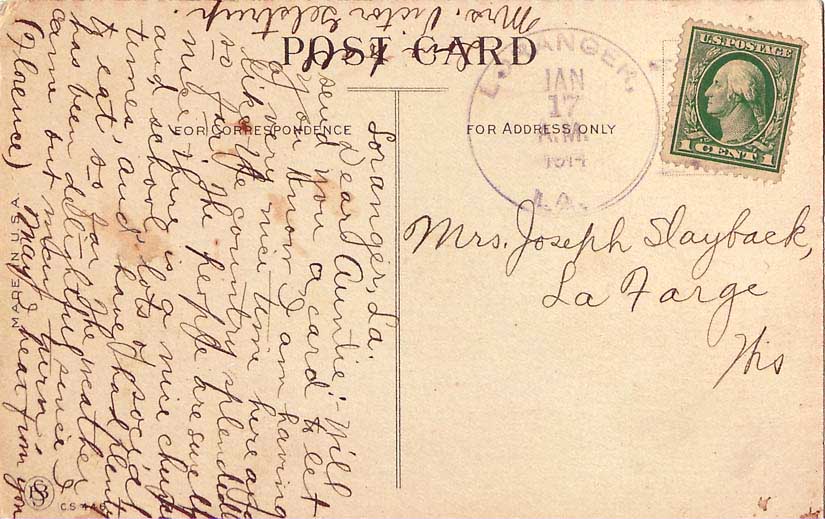 POST CARD
FOR CORRESPONDENCE
FOR ADDRESS ONLY
LORANGER,
JAN
17
A.M.
1914
LA.
U.S. POSTAGE
1 CENT 1
Mrs. Joseph Slayback,
La Farge
Wis
Loranger, La.
Dear Auntie:- Will
send you a card to let
you know I am having
a very nice time here and
like the country splendid
so far. The people are swell
nice. There is a nice church
and school, lots of social
times, and have had plenty
to eat so far. The weather
has been delightful since I
came out
May I hear from you
(Florence)
Mrs. Victor
MADE IN U S A
C.S. 446